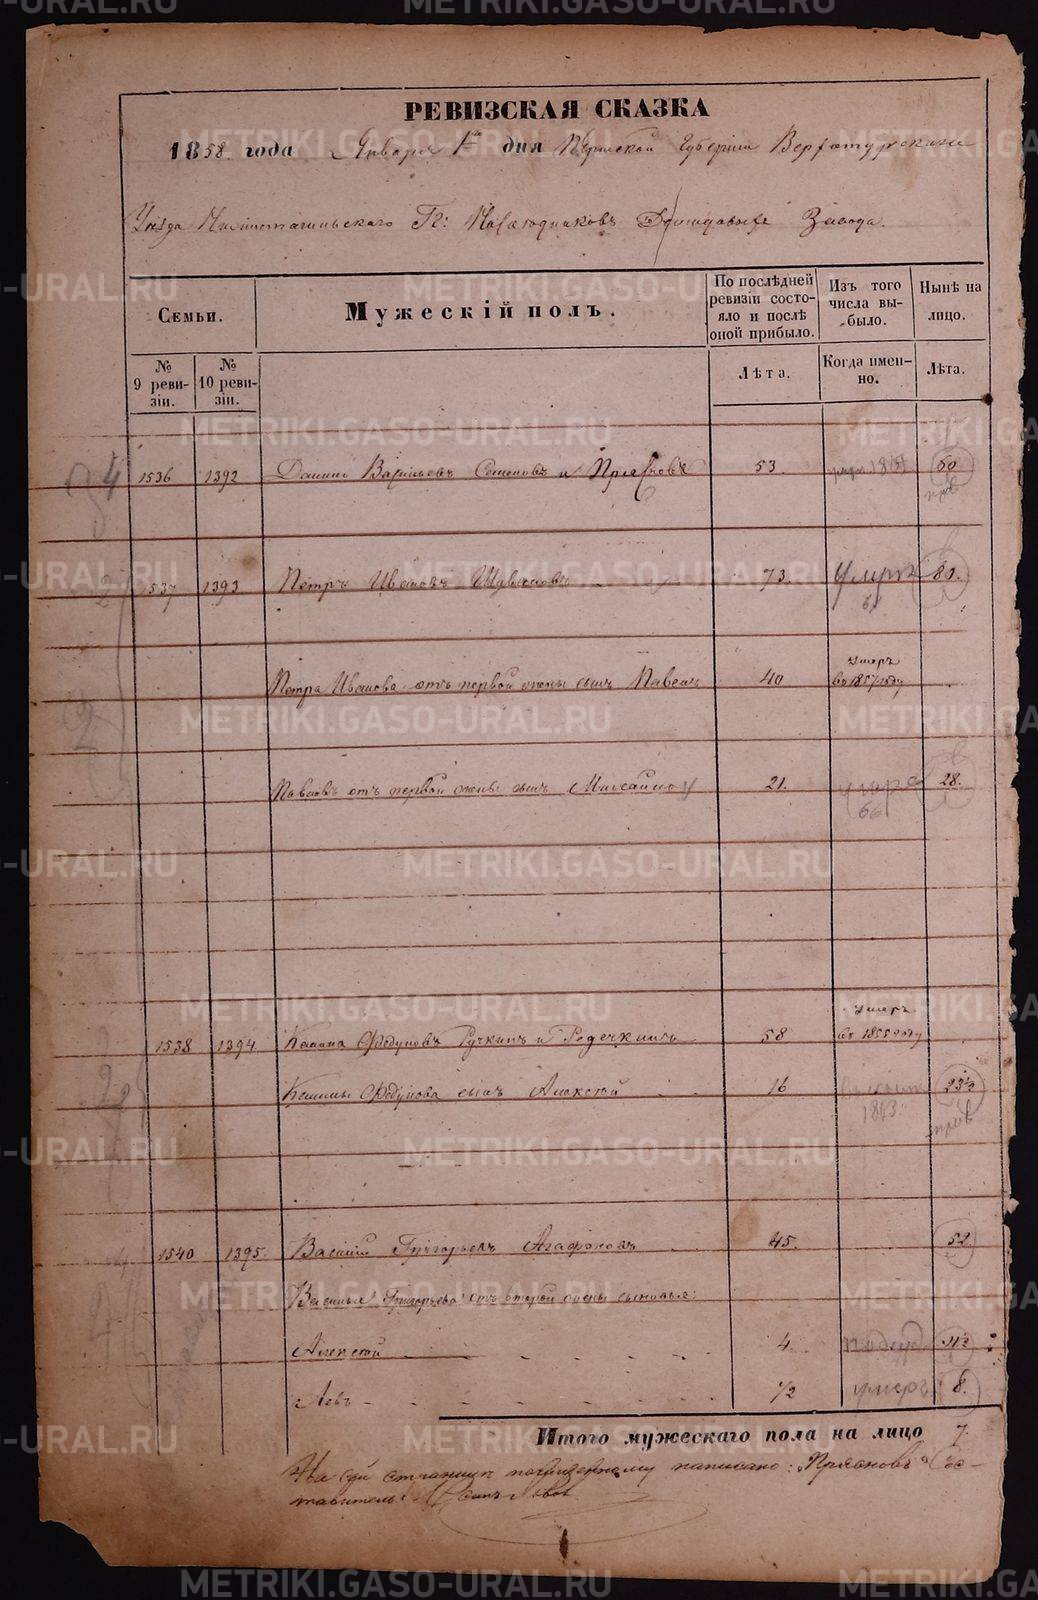 РЕВИЗСКАЯ СКАЗКА
1858 года Января 1го дня Пермской Губернии Верхотурскаго
Уѣзда Нижнетагильскаго Гг: Наслѣдниковъ Демидовыхъ Завода.
Семьи.
Мужескій полъ.
По послѣдней ревизіи состояло и послѣ оной прибыло.
Изъ того числа выбыло.
Нынѣ на лицо.
№ 9 ревизіи.
№ 10 ревизіи.
Лѣта.
Когда именно.
Лѣта.
1536 1392 Данило Васильевъ Семеновъ и Прясновъ 53. 60
1537 1393 Петръ Ивановъ 73. умеръ 80.
Петра Иванова отъ первой жены сынъ Павелъ 40 умеръ въ 1857 году
Павловъ отъ первой жены сынъ Михайло 21. умеръ 66 28.
1538 1394 Калина Федуловъ Ручкинъ и Редечкинъ 58 умеръ въ 1855 году
Калины Федулова сынъ Алексѣй 16 1863. 23½
1540 1395. Василій Григорьевъ Агафоновъ 45. 52
Василья Григорьева отъ второй жены сыновья:
Алексѣй 4. 11½
Левъ 1/2 умеръ 8.
Итого мужескаго пола на лицо 7.
На сей страницѣ по написано: Прясновъ Со-
ставитель
METRIKI.GASO-URAL.RU